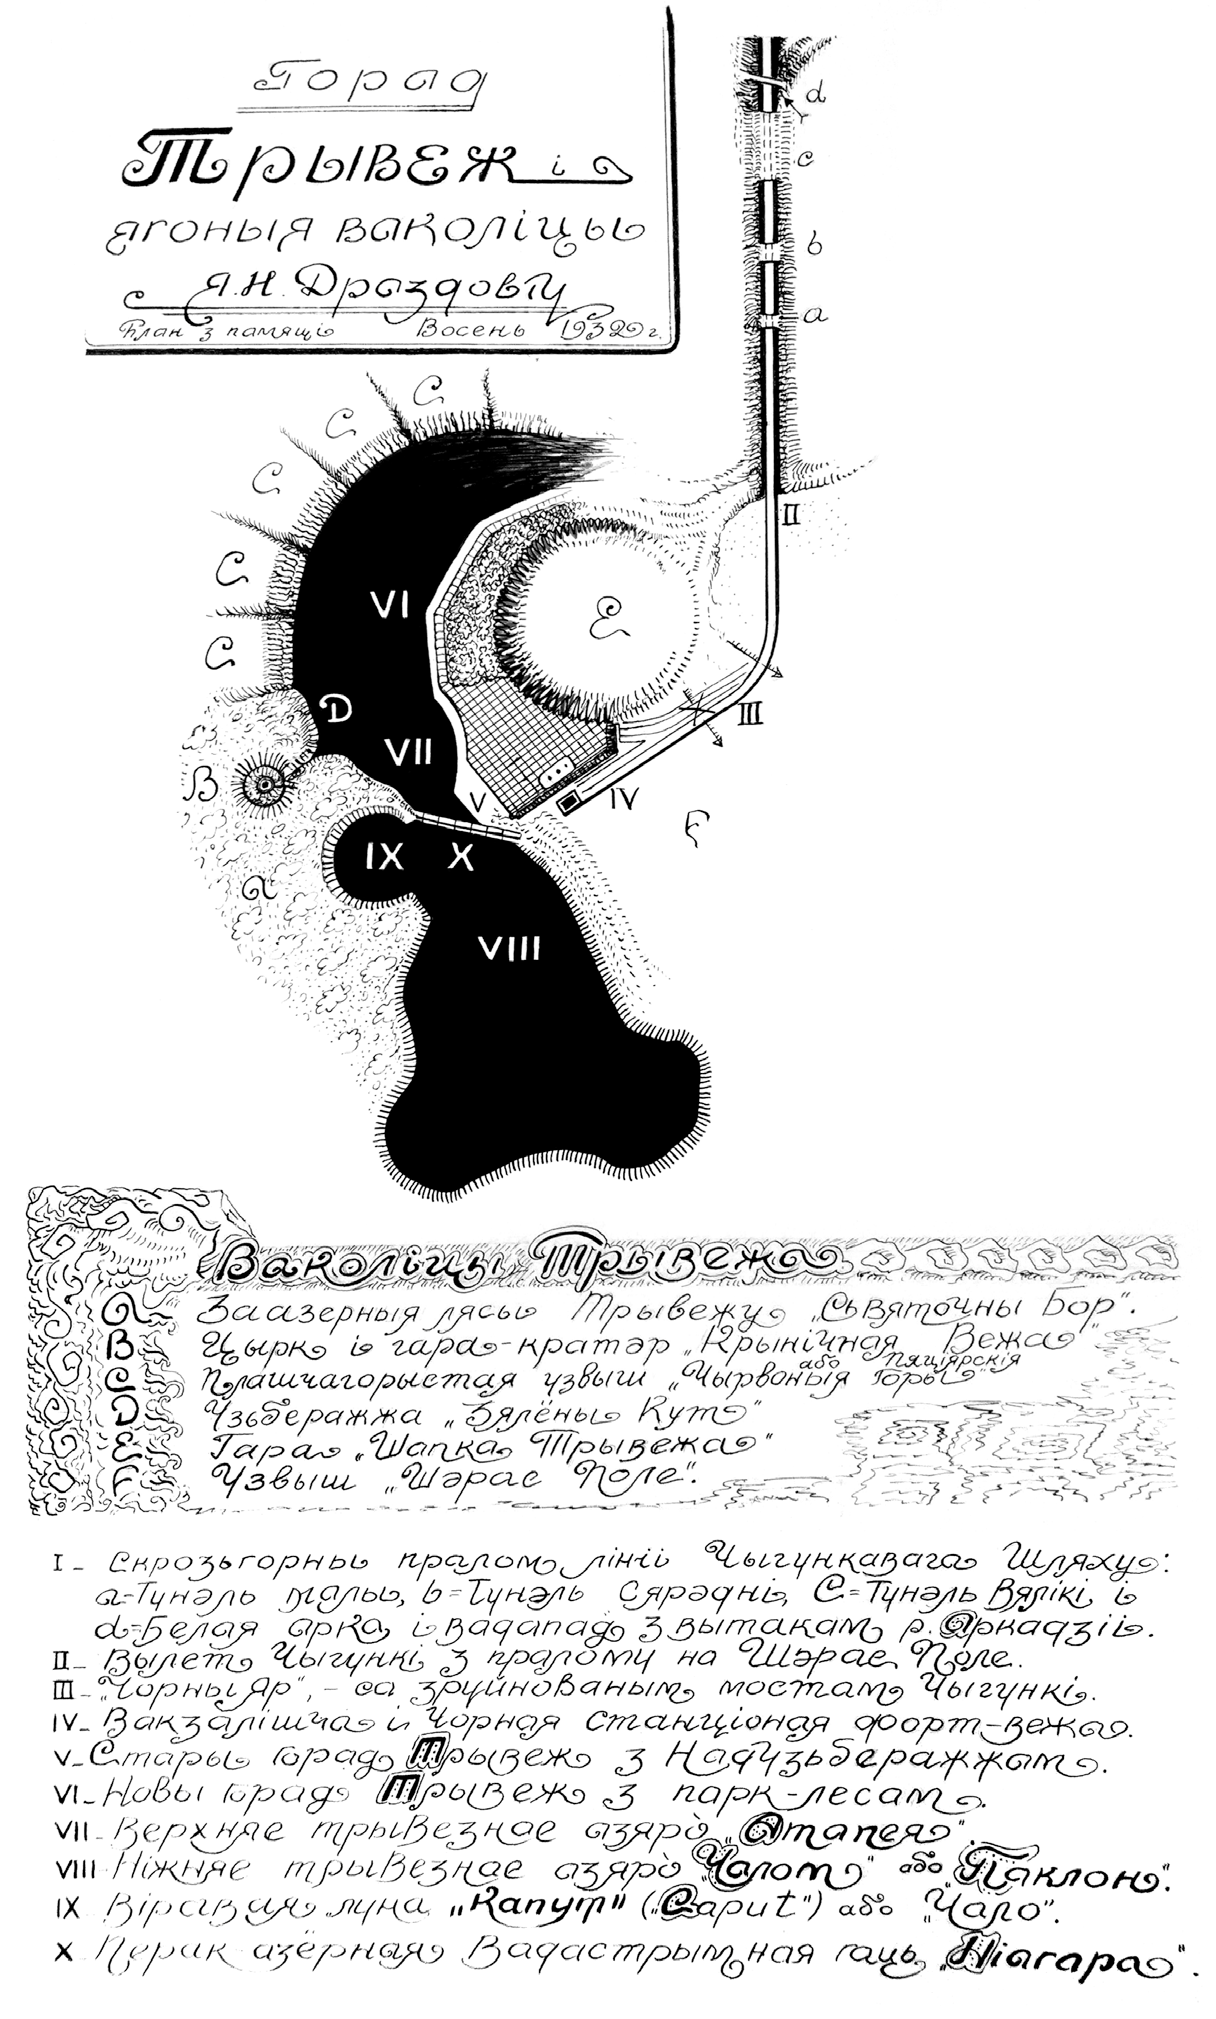 Горад
Трывеж і
ягоныя ваколіцы
Я.Н. Драздовіч
План з памяці Восень 1932 г.
d
c
b
a
C
C
C
C
C
II
VI
E
D
III
VII
B
V
IV
F
IX X
a
VIII
Ваколіцы Трывежа
A Заазерныя лясы Трывежу „Сьвяточны Бор".
B Цырк і гара-кратэр „Крынічная Вежа"
або Пяціярскія
C Плашчагорыстая узвыш „Чырвоныя Горы"
D Узьберажжа „Зялёны Кут"
E Гара „Шапка Трывежа"
F Узвыш „Шэрае Поле".
I - Скрозьгорны пралом лініі Чыгункавага Шляху:
a=Тунэль малы, b=Тунэль Сярэдні, C=Тунэль Вялікі і
d=Белая арка і вадапад з вытакам р. Аркадзіі.
II - Вылет Чыгункі з пралому на Шэрае Поле.
III - „Чорны Яр", - са зруйнованым мостам Чыгункі.
IV - Вакзалішча і Чорная станцыоная форт-вежа.
V - Стары горад Трывеж з Надузьбеražжам.
VI - Новы горад Трывеж з парк-лесам.
VII - Верхняе трывезнае азяро „Атапея".
VIII Ніжняе трывезнае азяро „Чалот" або „Паклон".
IX Віравая луна „Капут" („Caput") або „Чало".
X Перак азёрная Вадастрымная гаць „Ніагара".